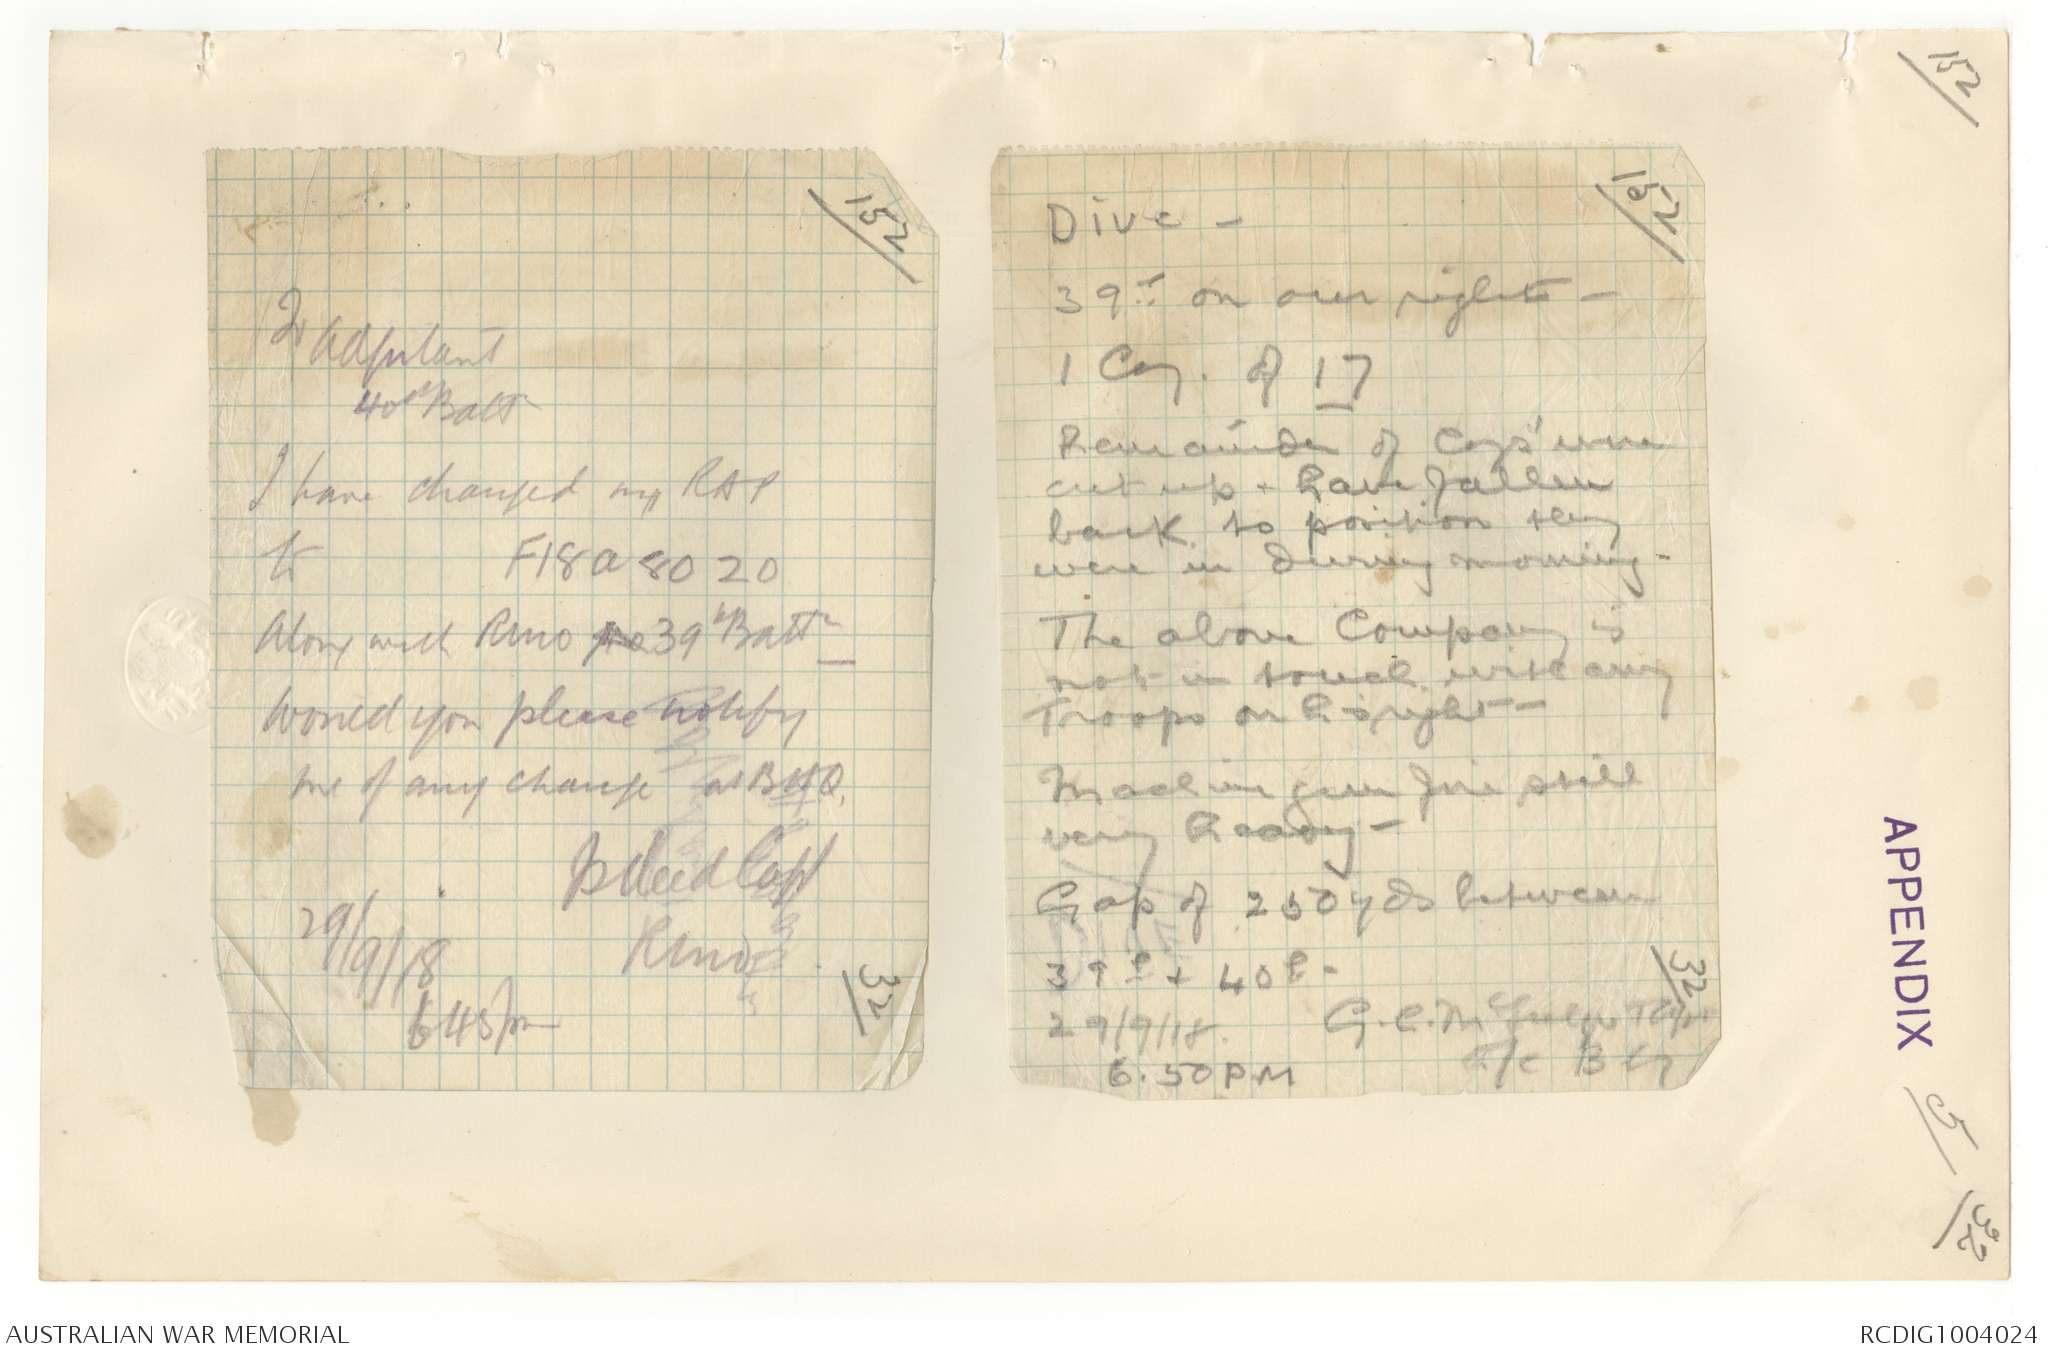 152
152
To Adjutant
40th Battn
I have changed my RAP
to F18a 80 20
Along with RMO 39th Battn
Would you please notify
me of any change at BHQ.
Capt
RMO
29/9/18
6 45 pm
32
152
Dive -
39th on our right -
1 Coy. of 17
Remainder of Coys' were
cut up + have fallen
back to position they
were in during morning -
The above Company is
not in touch with any
Troops on his right -
Machine gun fire still
very heavy -
Gap of 250 yds between
39th + 40th -
29/9/18.
6.50 PM
G.C. Mc
O/c B Coy
32
APPENDIX 5
32
AUSTRALIAN WAR MEMORIAL
RCDIG1004024